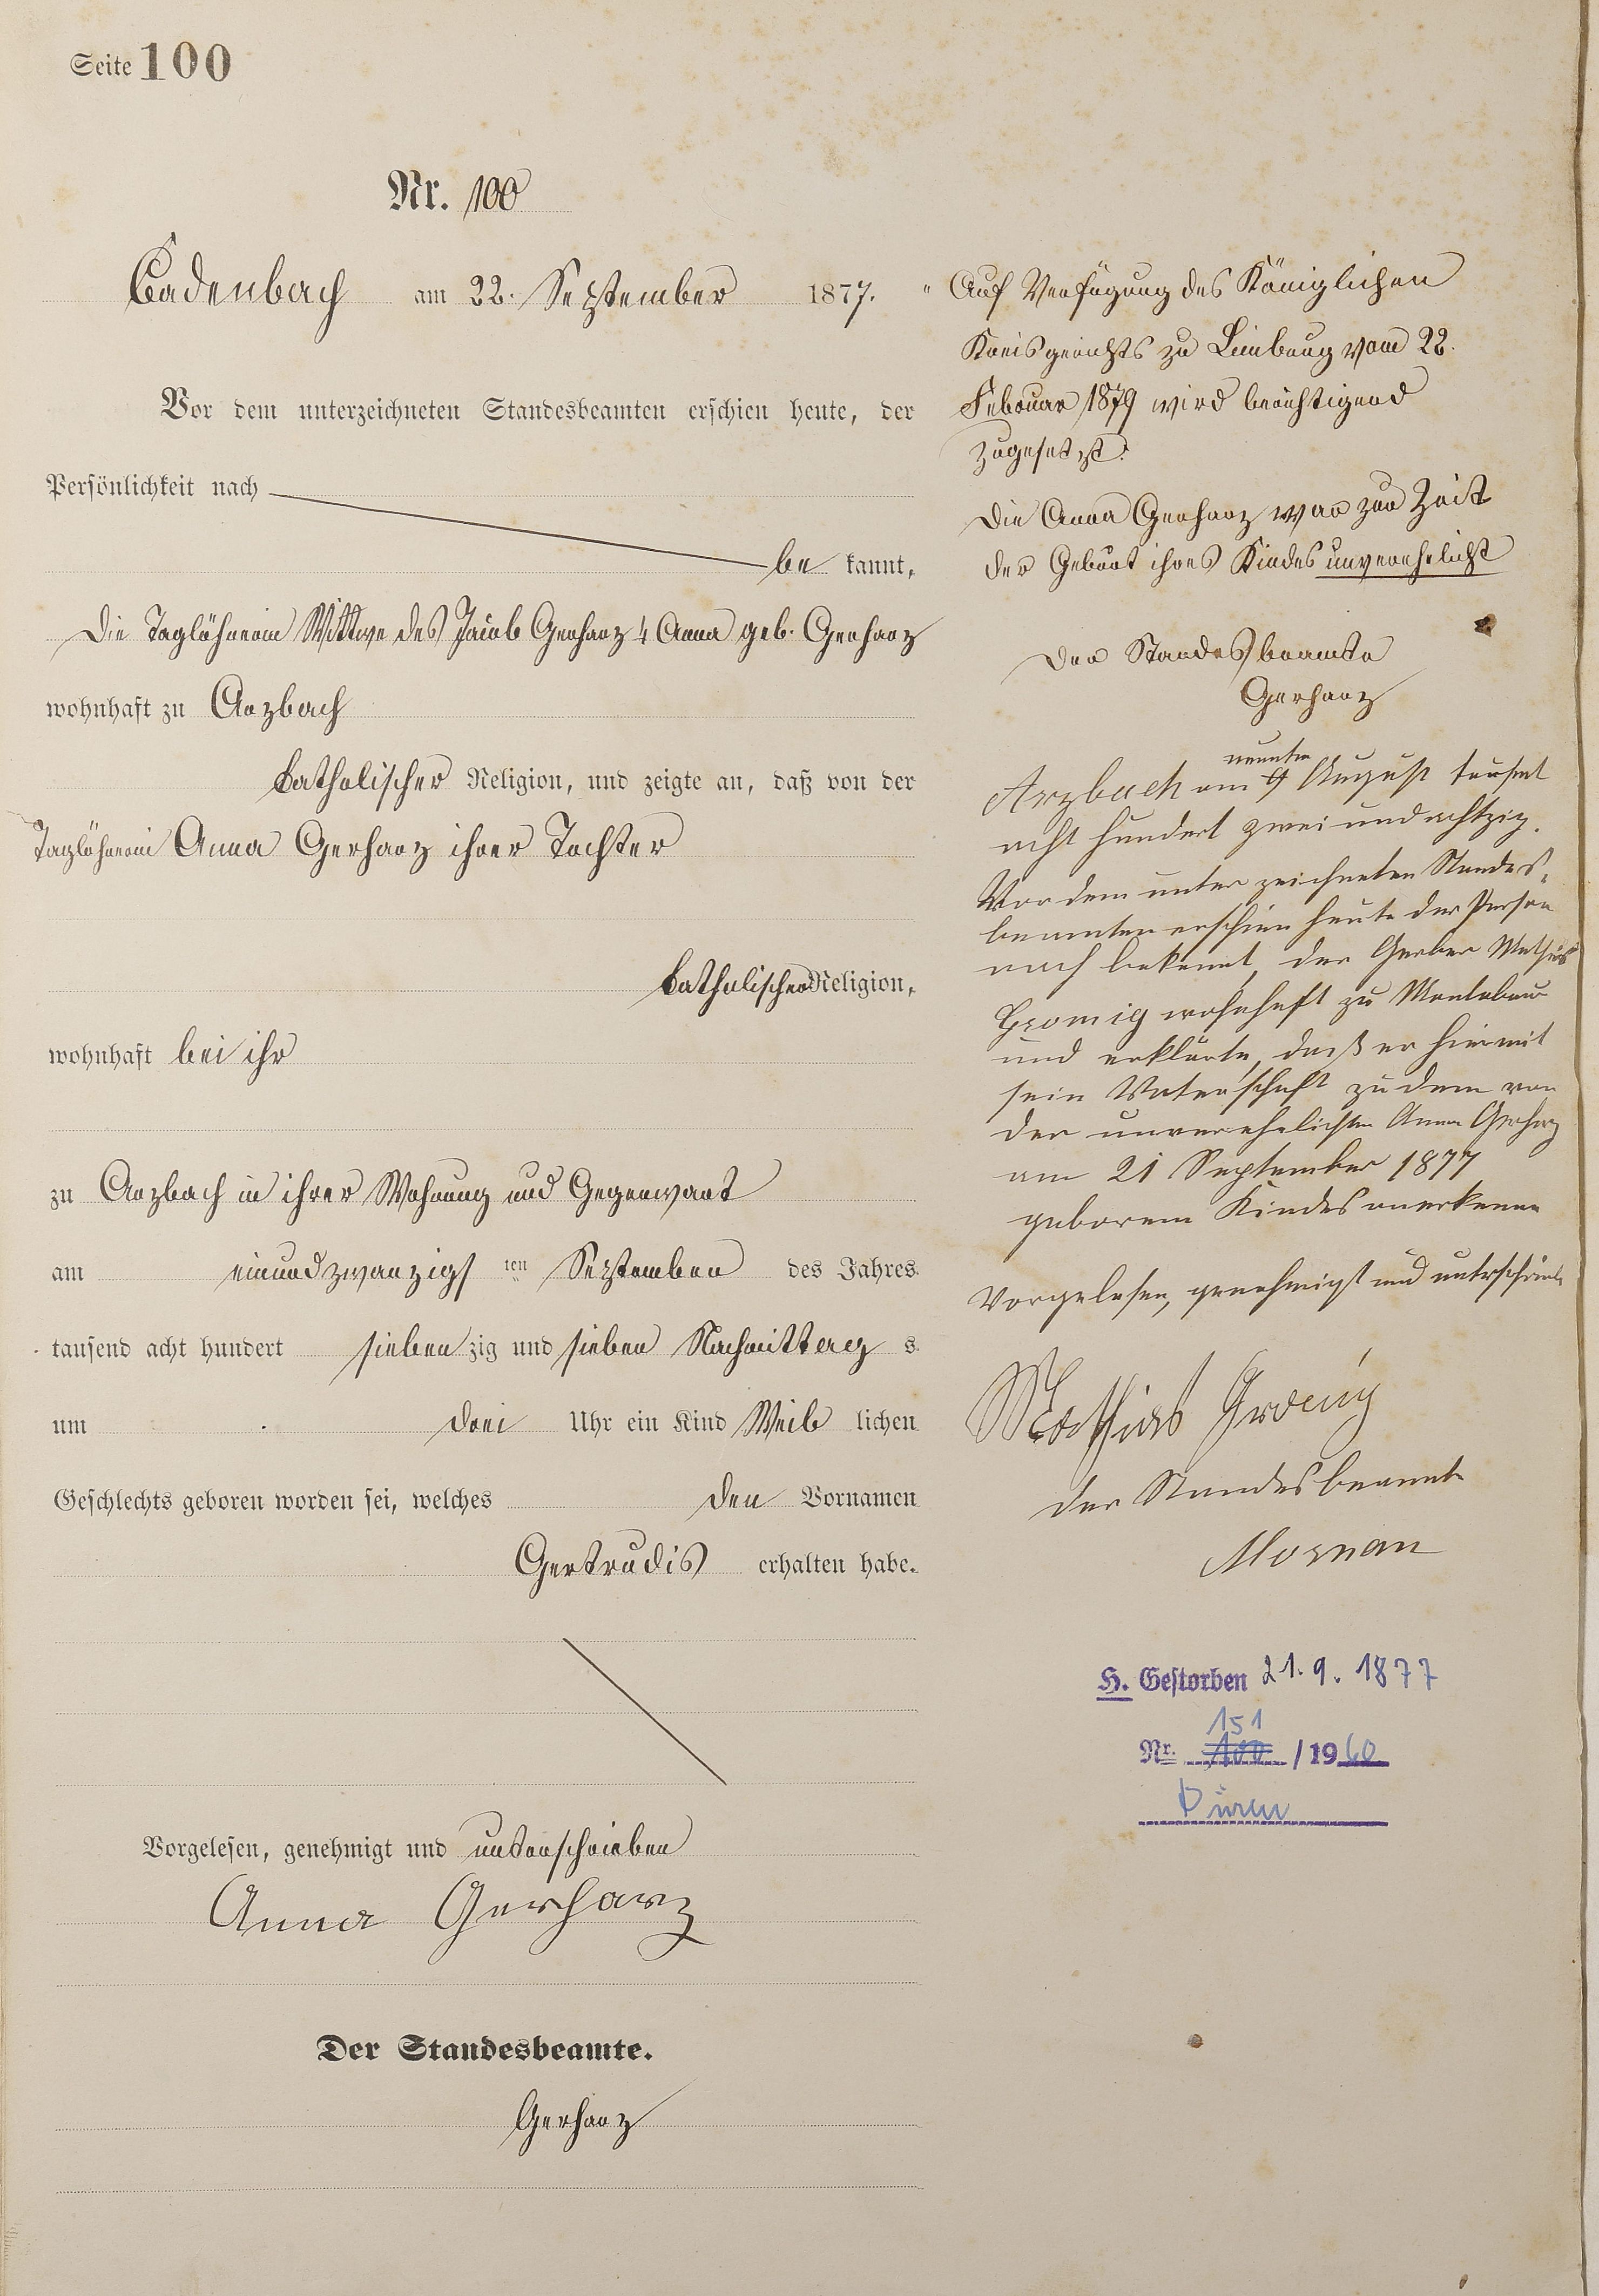 Seite 100
Nr. 100
Cadenbach am 22. September 1877.
Vor dem unterzeichneten Standesbeamten erschien heute, der
Persönlichkeit nach
be kannt,
die Taglöhnerin Wittwe des Jacob Gerharz 4 Anna geb. Gerharz
wohnhaft zu Arzbach
katholischer Religion, und zeigte an, daß von der
Taglöhnerin Anna Gerharz ihrer Tochter
katholischer Religion,
wohnhaft bei ihr
zu Arzbach in ihrer Wohnung und Gegenwart
am einundzwanzigs ten September des Jahres
tausend acht hundert sieben zig und sieben Nachmittag s
um drei Uhr ein Kind Weib lichen
Geschlechts geboren worden sei, welches den Vornamen
Gertrudis erhalten habe.
Vorgelesen, genehmigt und unterschrieben
Anna Gerharz
Der Standesbeamte.
Gerharz
Auf Verfügung des Königlichen
Kreisgerichts zu Limburg vom 22.
Februar 1879 wird berichtigend
zugesetzt:
die Anna Gerharz war zur Zeit
der Geburt ihres Kindes unverehelicht
Der Standesbeamte
Gerharz
neunten
Arzbach am 9 August tausend
acht hundert zwei und achtzig.
Vor dem unterzeichneten Standes-
beamten erschien heute der Person
nach bekannt, der Gerber Mathias
wohnhaft zu Montabaur
und erklärte, daß er hiermit
sein Vaterschaft zu dem von
der unverehelichten Anna Gerharz
am 21 September 1877
geborenen Kindes anerkenne
Vorgelesen, genehmigt und unterschrieben
Mathias
der Standesbeamte
H. Gestorben 21.9.1877
151
Nr. 100 /1960
Düren